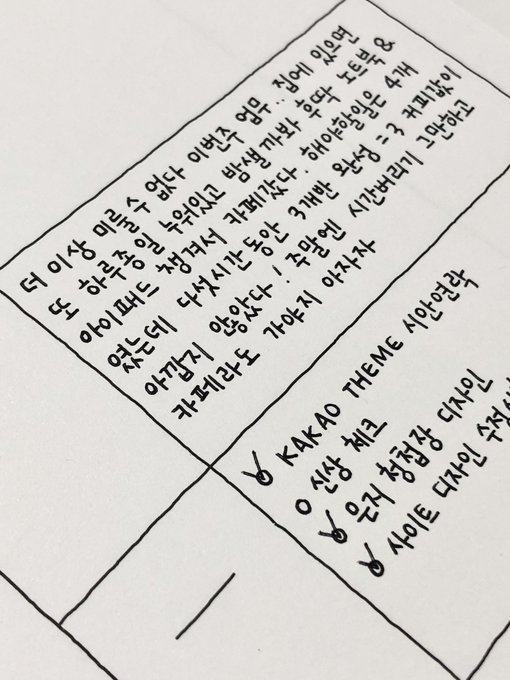 더 이상 미룰수 없다 이번주 업무.. 집에 있으면
또 하루종일 누워있고 밤샐까봐 후딱 노트북 &
아이패드 챙겨서 카페갔다. 해야할일은 4개
였는데 다섯시간 동안 3개반 완성 =3 커피값이
아깝지 않았다! 주말엔 시간버리기 그만하고
카페라도 가야지 아자자
KAKAO THEME 시안연락
신상 체크
은지 청첩장 디자인
사이트 디자인 수정